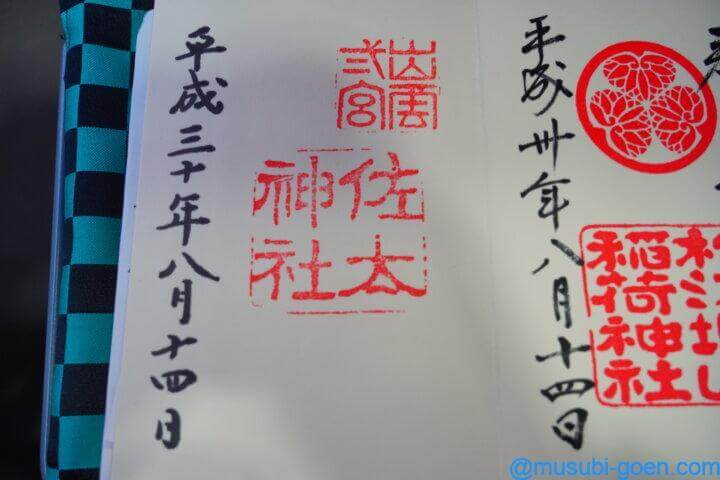 稲荷神社
平成卅年八月十四日
出雲
弍宮
佐太
神社
平成三十年八月十四日
@musubi-goen.com